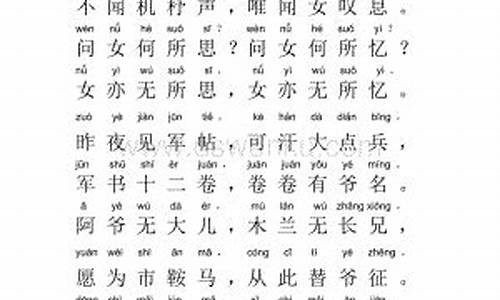 不闻机杼声，唯闻女叹息。
wèn nǚ hé suǒ sī？ wèn nǚ hé suǒ yì？
问女何所思？问女何所忆？
nǚ yì wú suǒ sī， nǚ yì wú suǒ yì。
女亦无所思，女亦无所忆。
zuó yè jiàn jūn tiě， kè hán dà diǎn bīng，
昨夜见军帖，可汗大点兵，
jūn shū shí èr juàn， juàn juàn yǒu yé míng。
军书十二卷，卷卷有爷名。
ā yé wú dà ér， mù lán wú zhǎng xiōng，
阿爷无大儿，木兰无长兄，
yuàn wèi shì ān mǎ， cóng cǐ tì yé zhēng。
愿为市鞍马，从此替爷征。